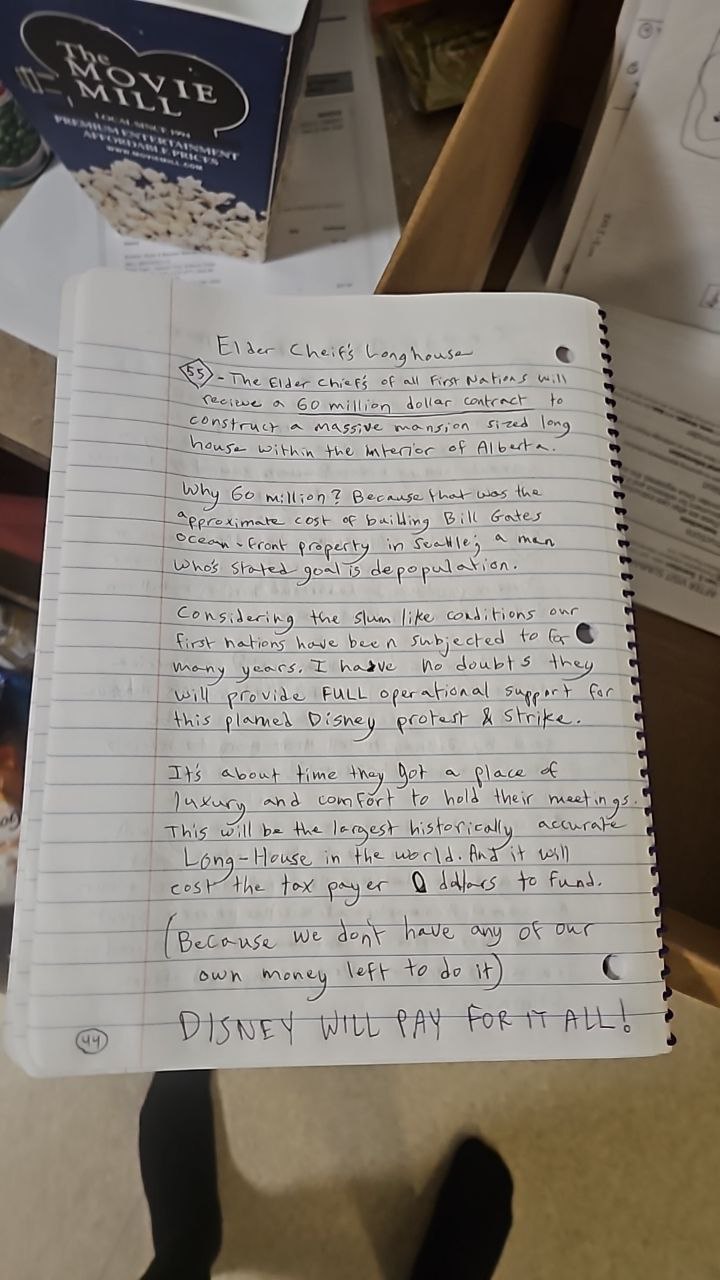 The
MOVIE
MILL
LOCAL SINCE 1994
PREMIUM ENTERTAINMENT
AFFORDABLE PRICES
WWW.MOVIEMILL.COM
Elder Cheif's Longhouse
55 - The Elder Chief's of all First Nations will
recieve a 60 million dollar contract to
construct a massive mansion sized long
house within the interior of Alberta.
Why 60 million? Because that was the
approximate cost of building Bill Gates
ocean-front property in Seattle; a man
who's stated goal is depopulation.
Considering the slum like conditions our
first nations have been subjected to for
many years. I have no doubts they
will provide FULL operational support for
this planned Disney protest & strike.
It's about time they got a place of
luxury and comfort to hold their meetings.
This will be the largest historically accurate
Long-House in the world. And it will
cost the tax payer 0 dollars to fund.
(Because we don't have any of our
own money left to do it)
DISNEY WILL PAY FOR IT ALL!
44